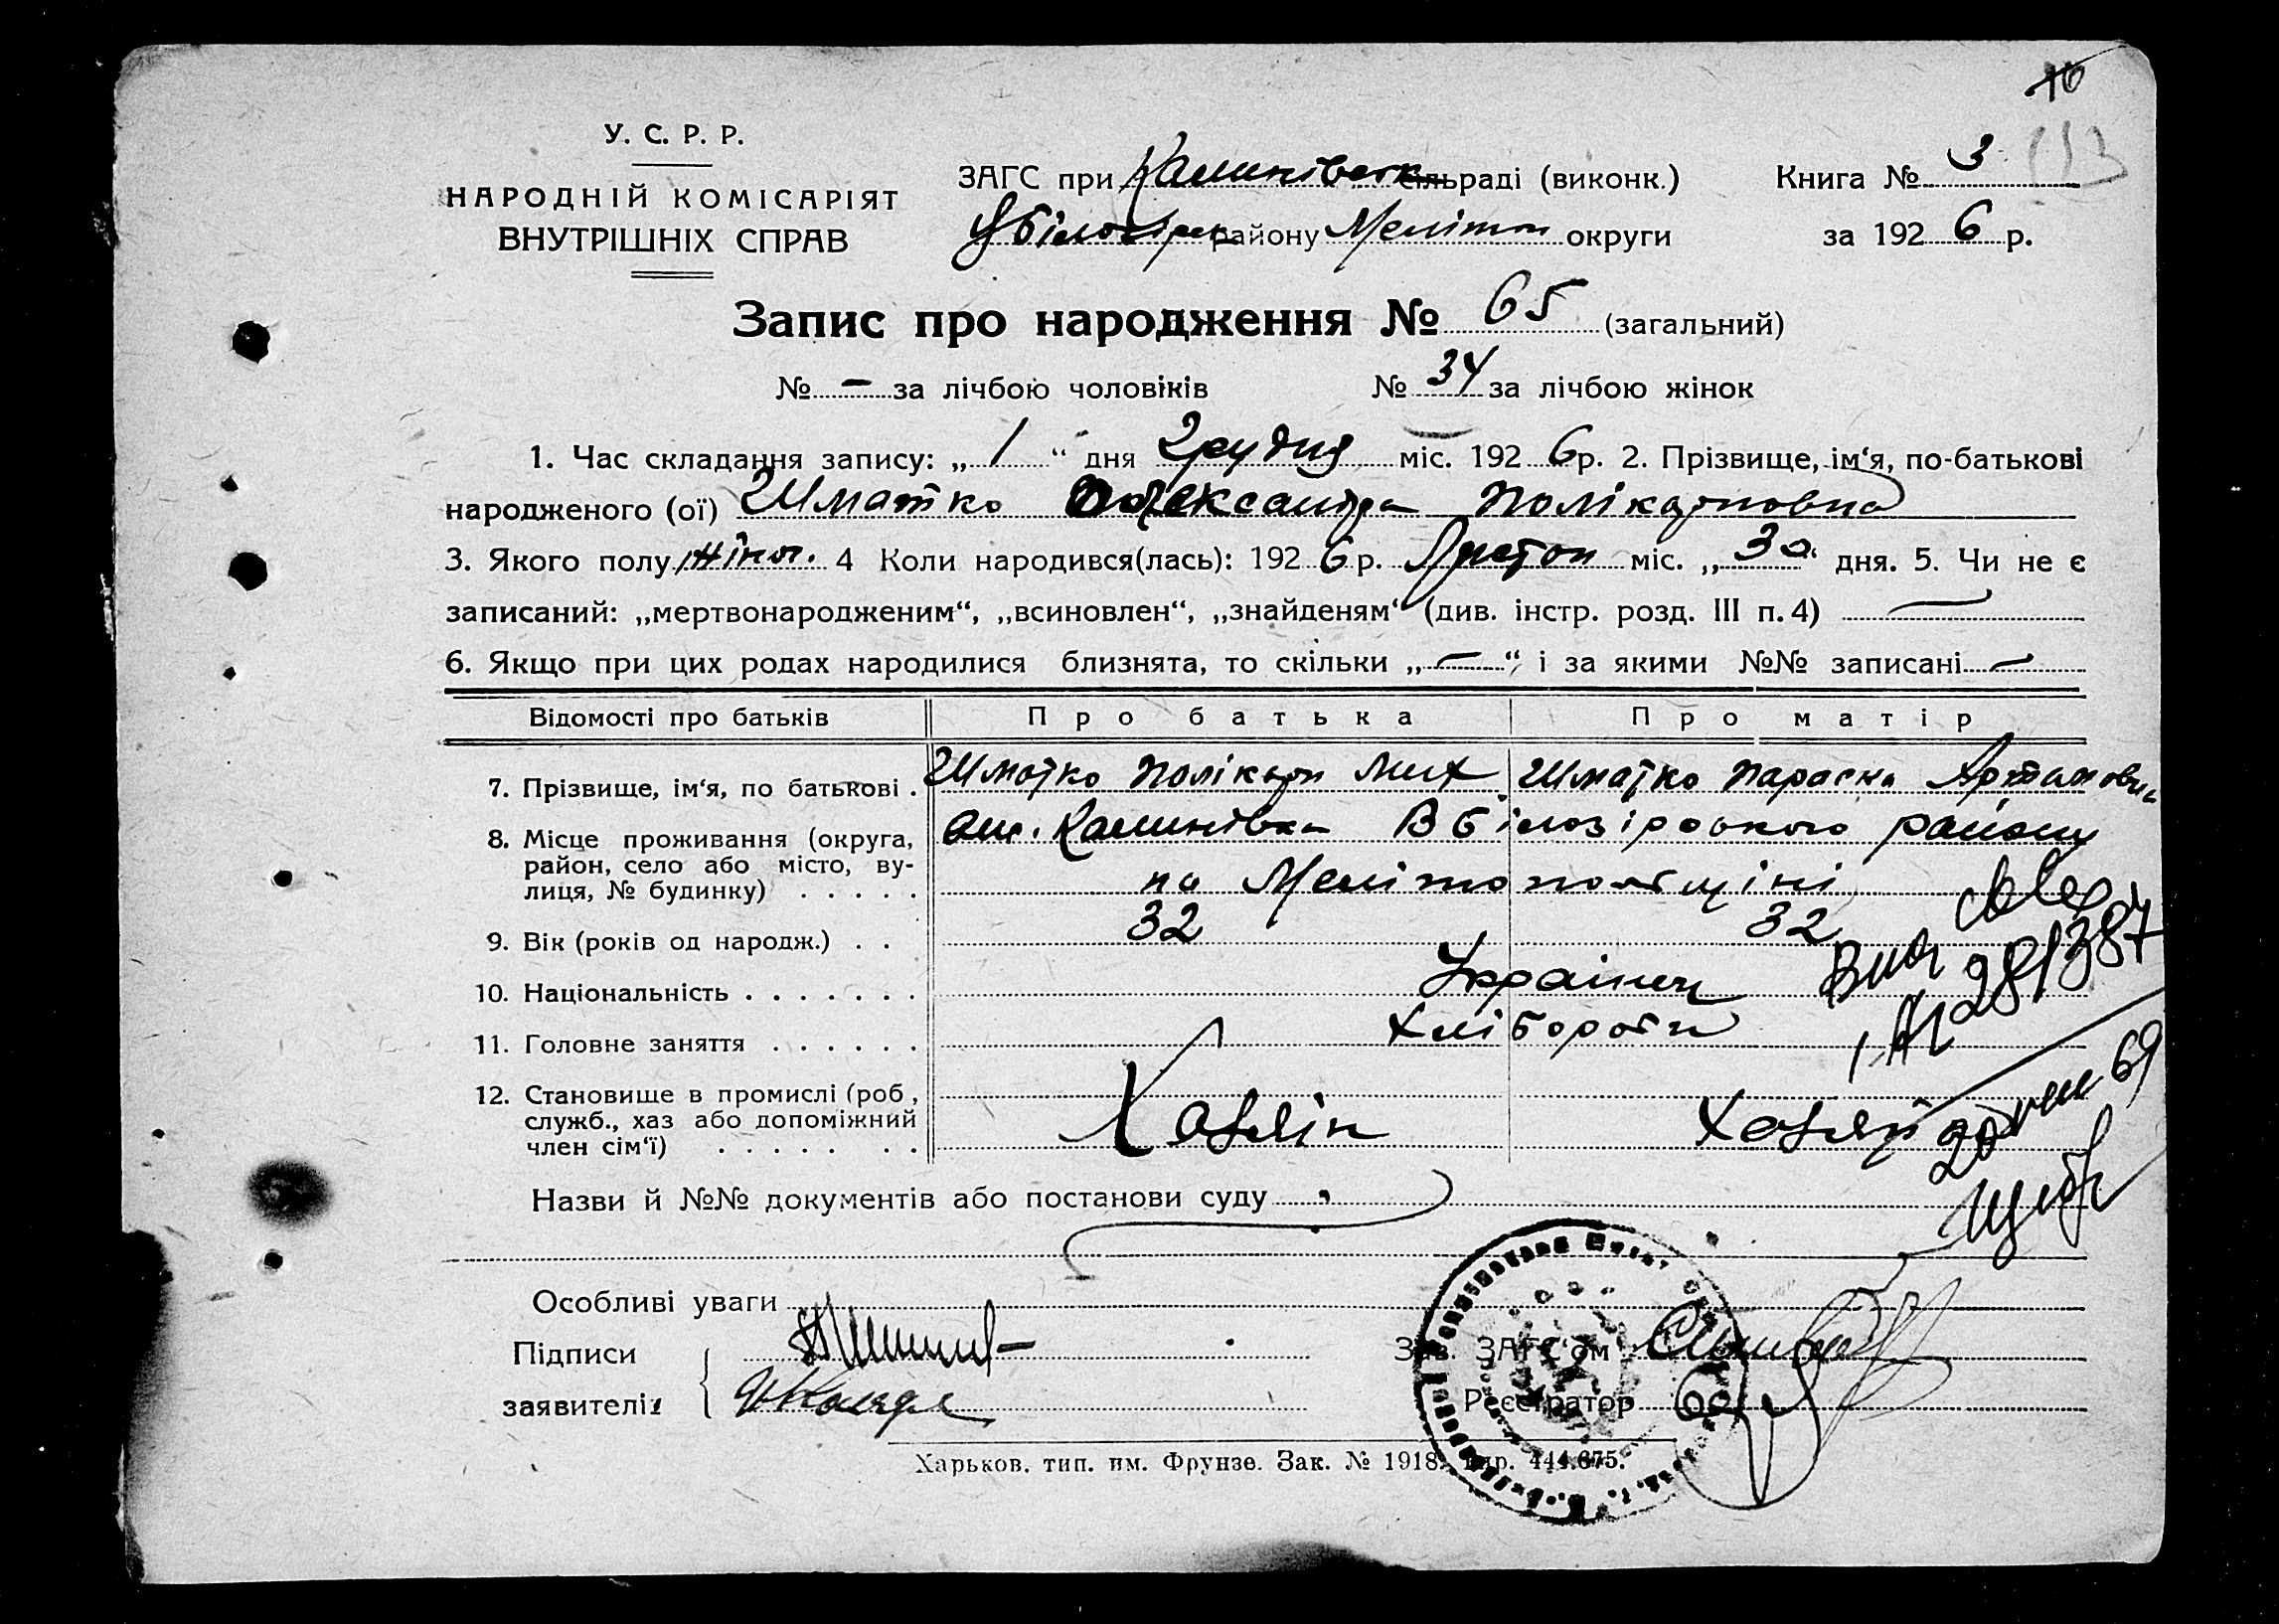 10
113
У. С. Р. Р.
НАРОДНІЙ КОМІСАРІЯТ
ВНУТРІШНІХ СПРАВ
ЗАГС при Калинівськ сільраді (виконк.) Книга № 3
району Меліто округи за 192 6 р.
Запис про народження № 65 (загальний)
№ — за лічбою чоловіків № 34 за лічбою жінок
1. Час складання запису: „ 1 “ дня Грудня міс. 192 6 р. 2. Прізвище, ім‘я, по-батькові
народженого (ої) Шматко Олександра Полікарповна
3. Якого полу жіноч. 4 Коли народився(лась): 192 6 р. Листоп міс. „ 30 “ дня. 5. Чи не є
записаний: „мертвонародженим“, „всиновлен“, „знайденям“ (див. інстр. розд. III п. 4) —
6. Якщо при цих родах народилися близнята, то скільки „ — “, і за якими №№ записані —
Відомості про батьків Про батька Про матір
7. Прізвище, ім‘я, по батькові . Шматко Полікарп Мих Шматко Параска Артамовна
8. Місце проживання (округа, Калинівка ВБілозірського району
район, село або місто, ву-
лиця, № будинку) . . . . . на Мелітопольщіні
9. Вік (років од народж.) . . 32 32
10. Національність . . . . . . . Українці
11. Головне заняття . . . . . . Хлібороби
12. Становище в промислі (роб.,
служб., хаз або допоміжний Хазяін Хазяй
член сім‘ї) . . . . . . .
281387
69
Назви й №№ документів або постанови суду
Особливі уваги
Підписи Зав. ЗАГС‘ом
заявителів Реєстратор
Харьков. тип. им. Фрунзе. Зак. № 1918. тир. 444.675.